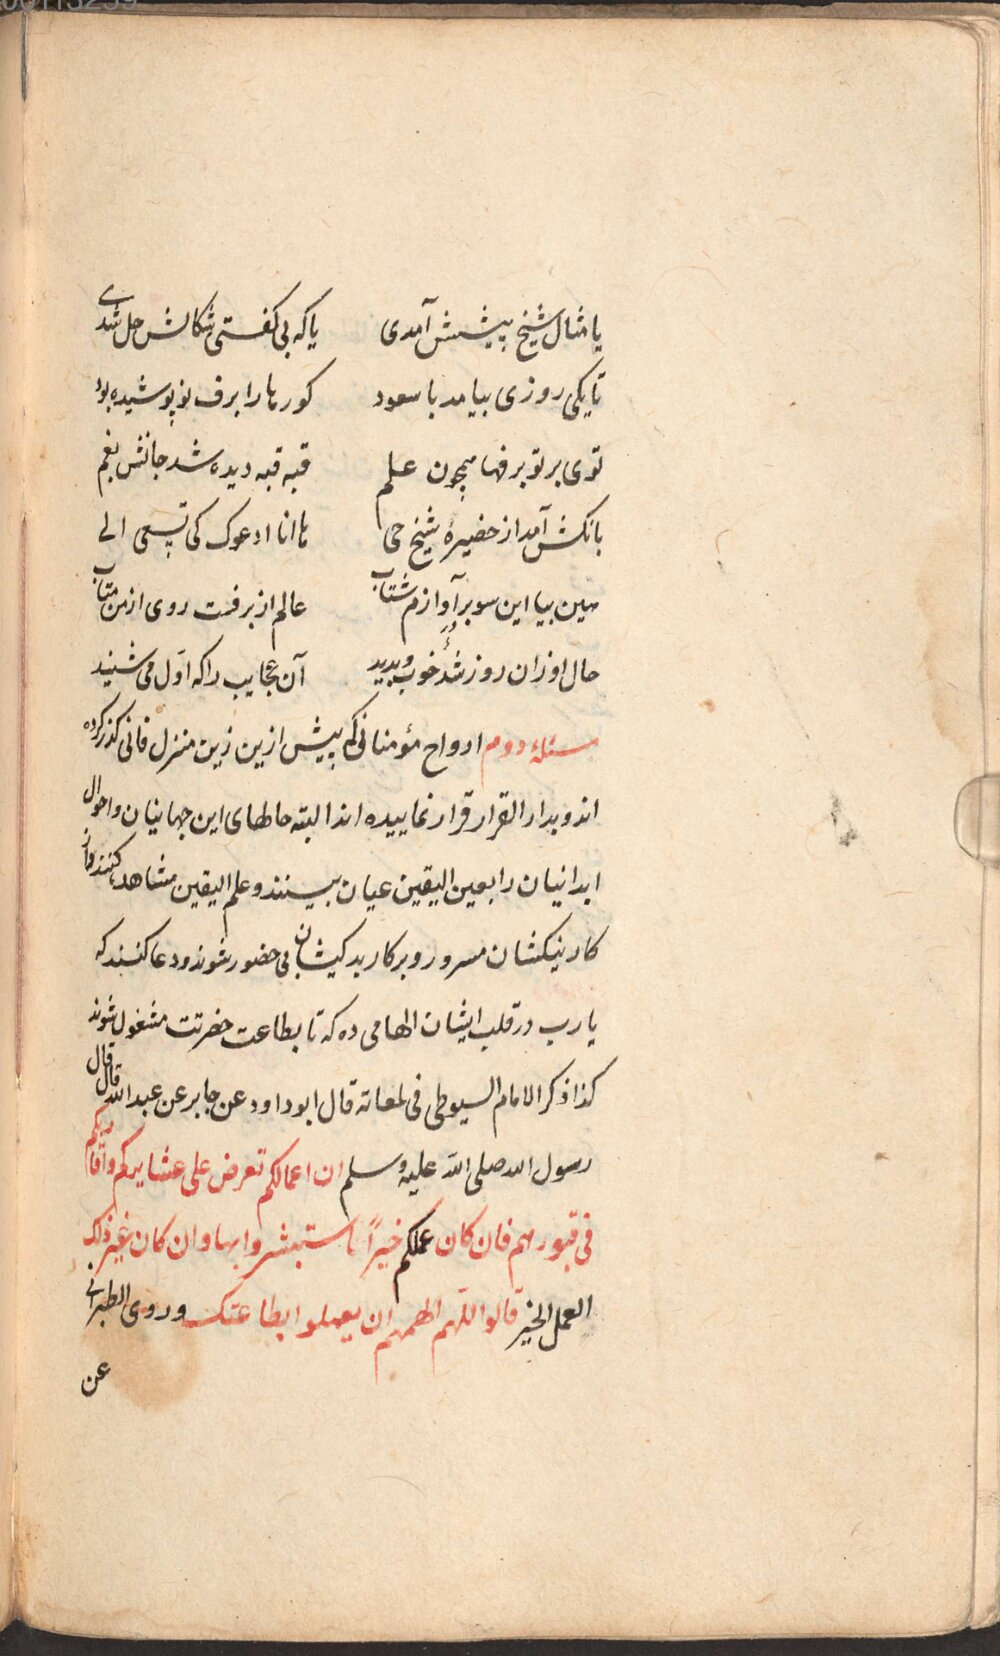 یا مثال شیخ پیشش آمدی یا که بی کفتی شکالش حل شدی
تا یکی روزی بیامد با سعود کورها را برف نو پوشیده بود
توی بر تو برفها همچون علم قبه قبه دیده شد جانش بغم
بانکش آمد از حضیرهٔ شیخ حی ها انا ادعوک کی تسعی الی
هین بیا این سو بر آوازم شتاب عالم ار برفست روی از من متاب
حال او زان روز شد خوب و بدید آن عجایب را که اول می شنید
مسئلهٔ دوم ارواح مؤمنانی که پیش ازین زین منزل فانی کذر کرده
اند و بدار القرار قرار نماییده اند البته حالهای این جهانیان و احوال
ابدانیان را بعین الیقین عیان بینند و علم الیقین مشاهده کنند و از
کار نیکشان مسرور و بر کار بد کیشان بی حضور شوند و دعا کنند که
یا رب در قلب ایشان الهامی ده که تا بطاعت حضرتت مشغول شوند
کذا ذکر الامام السیوطی فی لمعاته قال ابو داود عن جابر عن عبد الله قال قال
رسول الله صلی الله علیه وسلم ان اعمالکم تعرض علی عشایرکم واقاربکم
فی قبورهم فان کان عملکم خیراً استبشروا بها وان کان غیر ذلک
العمل الخیر قالوا اللهم الهمهم ان یعملوا بطاعتک وروی الطبرانی
عن